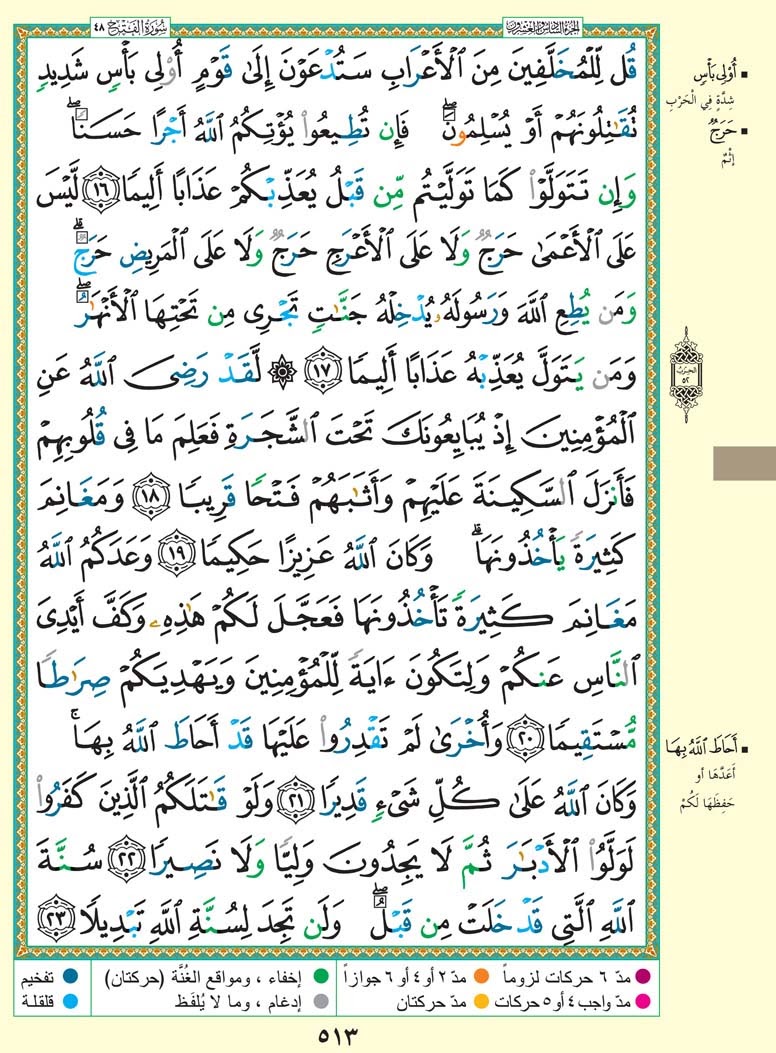 الجزء السادس والعشرون
سُورَةُ الفَتْح ٤٨
قُل لِّلْمُخَلَّفِينَ مِنَ ٱلْأَعْرَابِ سَتُدْعَوْنَ إِلَىٰ قَوْمٍ أُو۟لِى بَأْسٍ شَدِيدٍ
تُقَـٰتِلُونَهُمْ أَوْ يُسْلِمُونَ ۖ فَإِن تُطِيعُوا۟ يُؤْتِكُمُ ٱللَّهُ أَجْرًا حَسَنًا ۖ
وَإِن تَتَوَلَّوْا۟ كَمَا تَوَلَّيْتُم مِّن قَبْلُ يُعَذِّبْكُمْ عَذَابًا أَلِيمًا ١٦ لَّيْسَ
عَلَى ٱلْأَعْمَىٰ حَرَجٌ وَلَا عَلَى ٱلْأَعْرَجِ حَرَجٌ وَلَا عَلَى ٱلْمَرِيضِ حَرَجٌ ۗ
وَمَن يُطِعِ ٱللَّهَ وَرَسُولَهُۥ يُدْخِلْهُ جَنَّـٰتٍ تَجْرِى مِن تَحْتِهَا ٱلْأَنْهَـٰرُ ۖ
وَمَن يَتَوَلَّ يُعَذِّبْهُ عَذَابًا أَلِيمًا ١٧ ۞ لَّقَدْ رَضِىَ ٱللَّهُ عَنِ
ٱلْمُؤْمِنِينَ إِذْ يُبَايِعُونَكَ تَحْتَ ٱلشَّجَرَةِ فَعَلِمَ مَا فِى قُلُوبِهِمْ
فَأَنزَلَ ٱلسَّكِينَةَ عَلَيْهِمْ وَأَثَـٰبَهُمْ فَتْحًا قَرِيبًا ١٨ وَمَغَانِمَ
كَثِيرَةً يَأْخُذُونَهَا ۗ وَكَانَ ٱللَّهُ عَزِيزًا حَكِيمًا ١٩ وَعَدَكُمُ ٱللَّهُ
مَغَانِمَ كَثِيرَةً تَأْخُذُونَهَا فَعَجَّلَ لَكُمْ هَـٰذِهِۦ وَكَفَّ أَيْدِىَ
ٱلنَّاسِ عَنكُمْ وَلِتَكُونَ ءَايَةً لِّلْمُؤْمِنِينَ وَيَهْدِيَكُمْ صِرَٰطًا
مُّسْتَقِيمًا ٢٠ وَأُخْرَىٰ لَمْ تَقْدِرُوا۟ عَلَيْهَا قَدْ أَحَاطَ ٱللَّهُ بِهَا ۚ
وَكَانَ ٱللَّهُ عَلَىٰ كُلِّ شَىْءٍ قَدِيرًا ٢١ وَلَوْ قَـٰتَلَكُمُ ٱلَّذِينَ كَفَرُوا۟
لَوَلَّوُا۟ ٱلْأَدْبَـٰرَ ثُمَّ لَا يَجِدُونَ وَلِيًّا وَلَا نَصِيرًا ٢٢ سُنَّةَ
ٱللَّهِ ٱلَّتِى قَدْ خَلَتْ مِن قَبْلُ ۖ وَلَن تَجِدَ لِسُنَّةِ ٱللَّهِ تَبْدِيلًا ٢٣
▪ أُوْلِى بَأْسٍ
شِدَّةٍ فِي الْحَرْبِ
▪ حَرَجٌ
إِثْمٌ
الحزب
٥٢
▪ أَحَاطَ ٱللَّهُ بِهَا
أَعَدَّهَا أو
حَفِظَهَا لَكُمْ
مدّ ٦ حركات لزوماً
مدّ ٢ أو ٤ أو ٦ جوازاً
إخفاء ، ومواقع الغُنَّة (حركتان)
تفخيم
مدّ واجب ٤ أو ٥ حركات
مدّ حركتان
إدغام ، وما لا يُلفَظ
قلقلة
٥١٣